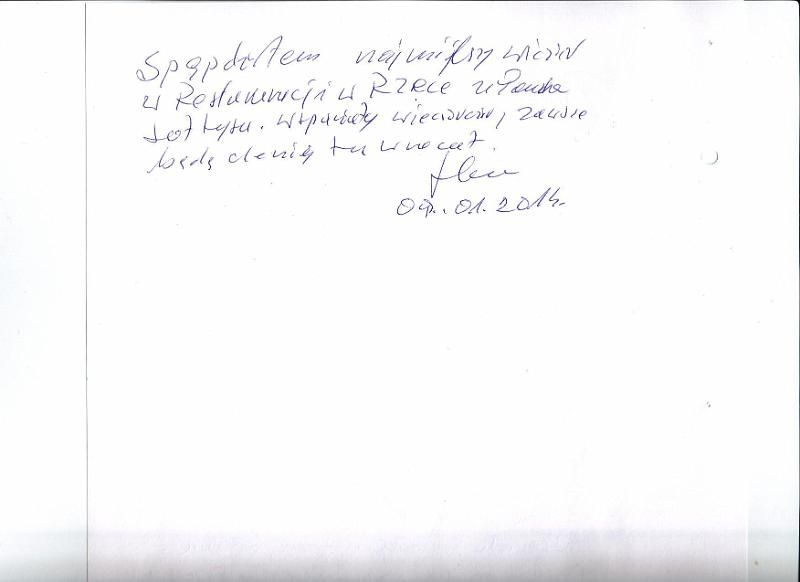 Spędziłem najmilszy wieczór
w Restauracji w Rzece u Pana
Sołtysa. Wspaniały wieczór, zawsze
będę chciał tu wracać.
09.01.2014.